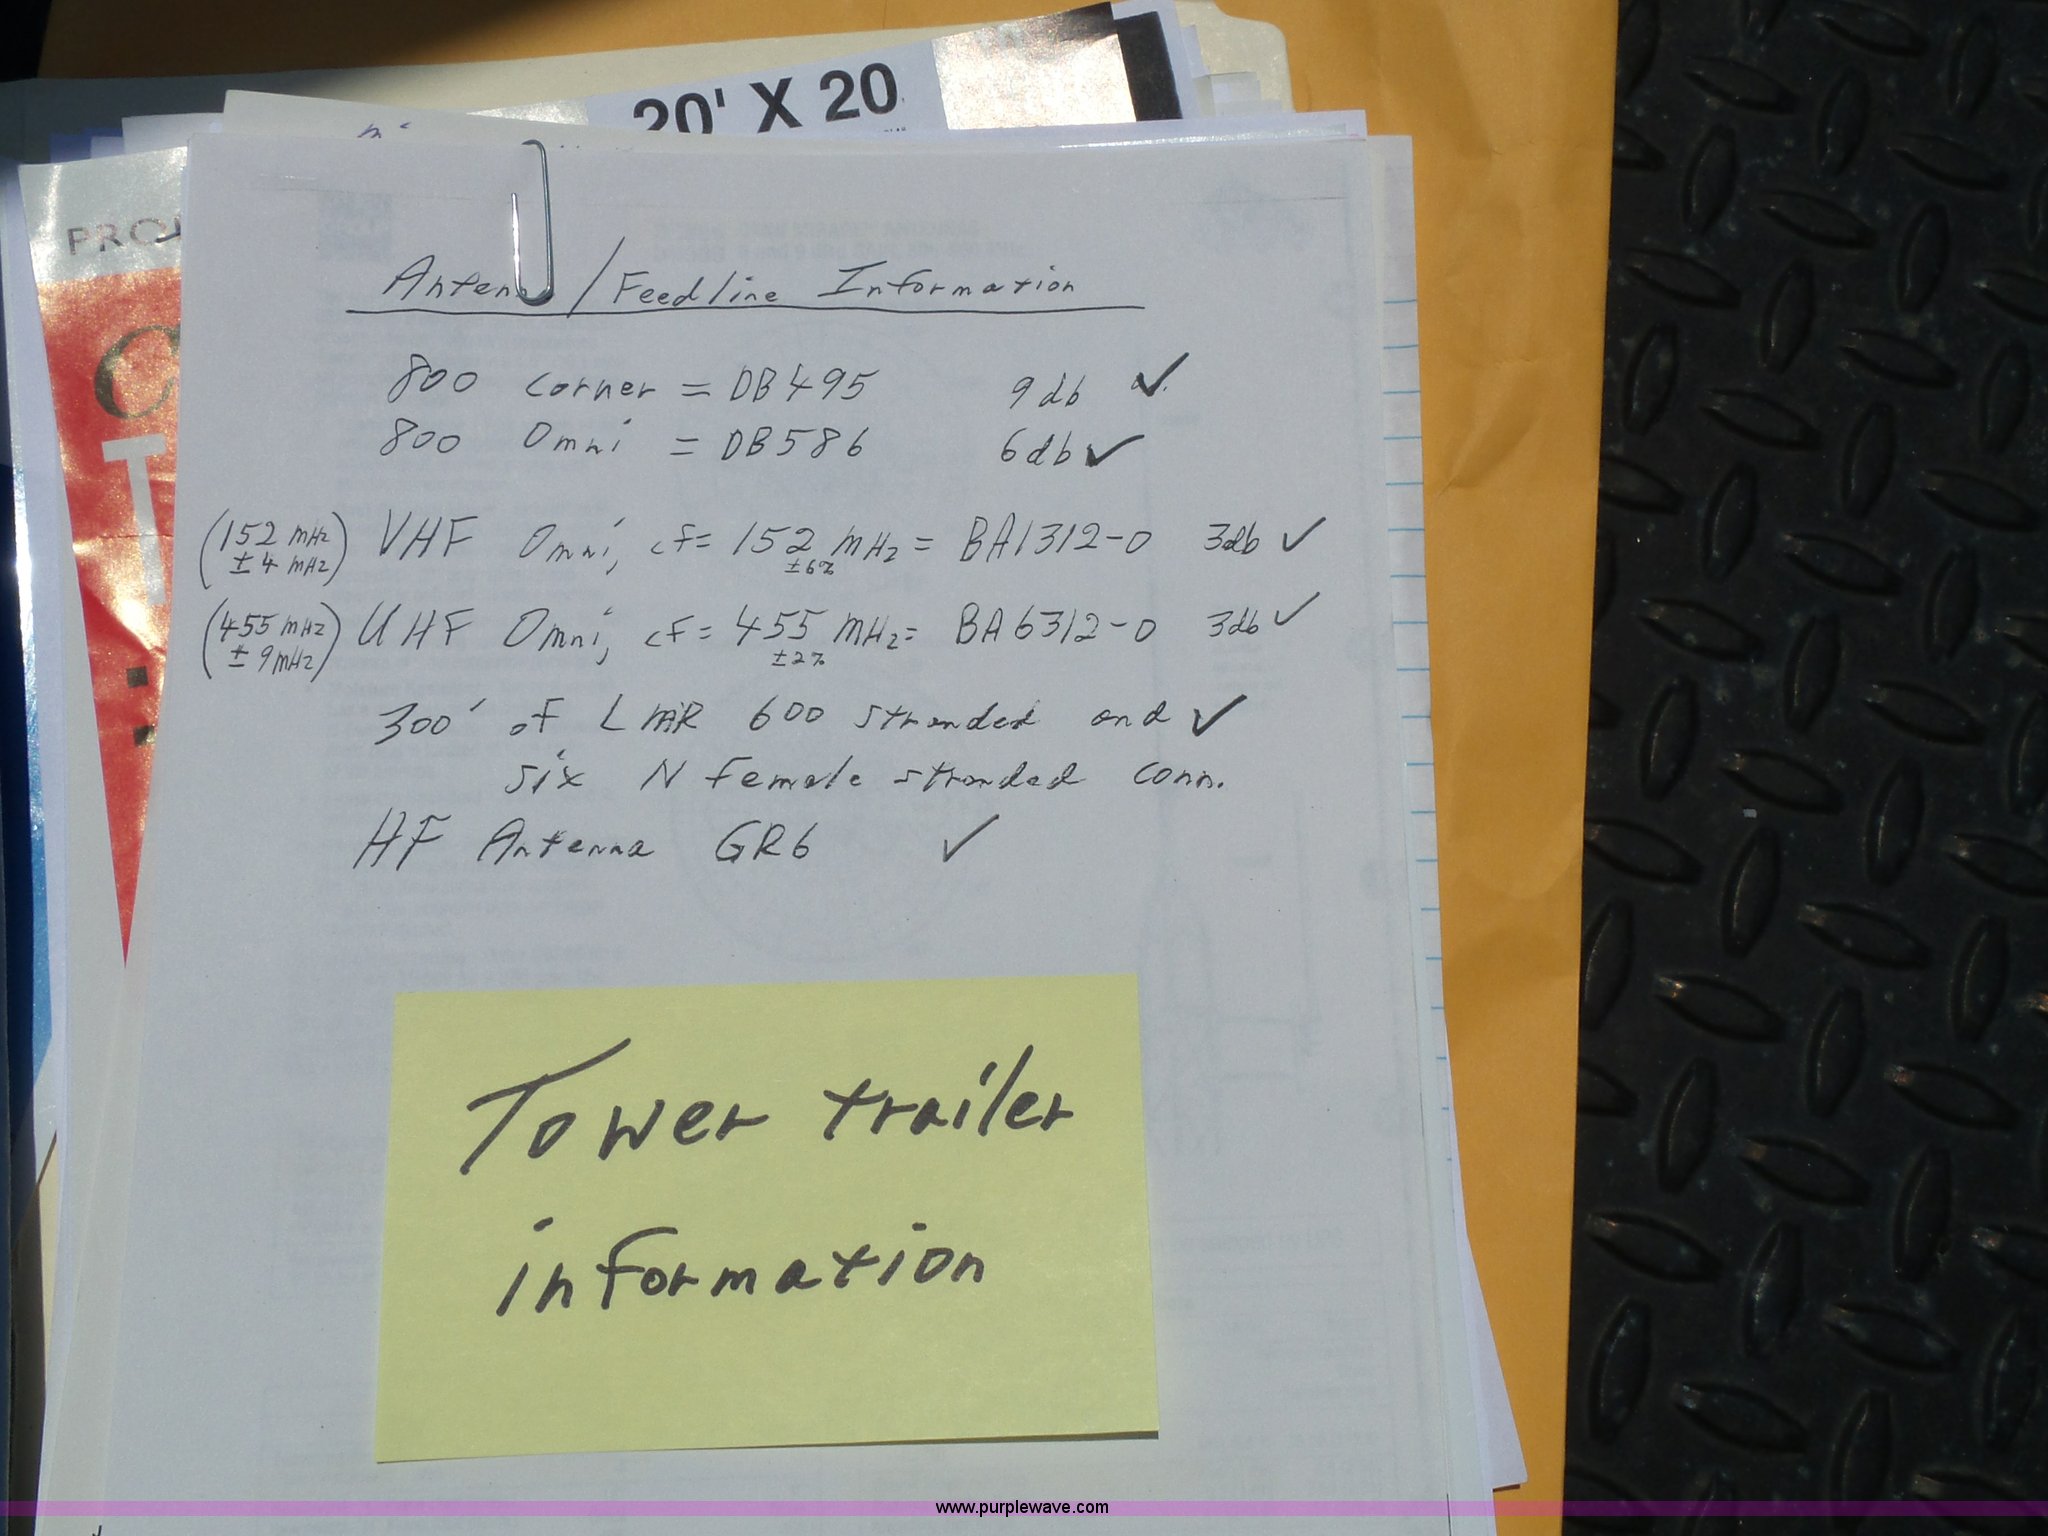 20' X 20
PRO
C
T
Anten / Feedline Information
800 corner = DB495 9db ✓
800 Omni = DB586 6db ✓
(152 mHz ± 4 mHz) VHF Omni, cf= 152 mHz = BA1312-0 3db ✓
±6%
(455 mHz ± 9mHz) UHF Omni, cf= 455 mHz= BA6312-0 3db ✓
±2%
300' of LMR 600 stranded and ✓
six N female stranded conn.
HF Antenna GR6 ✓
Tower trailer
information
www.purplewave.com